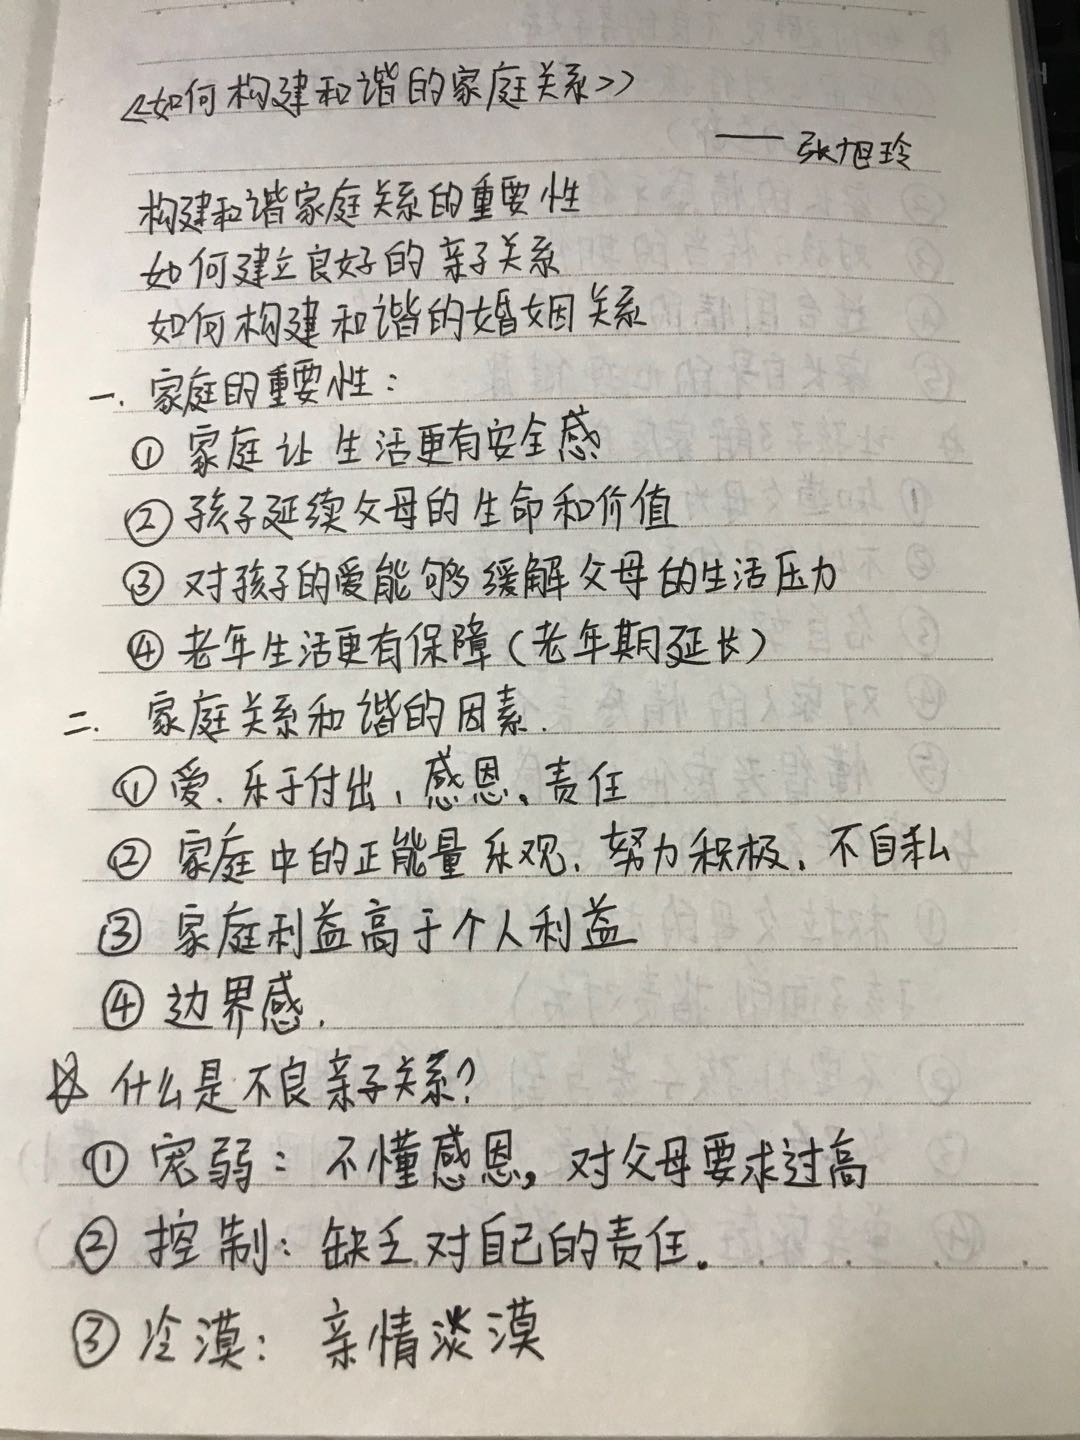 《如何构建和谐的家庭关系》
—— 张旭玲
构建和谐家庭关系的重要性
如何建立良好的亲子关系
如何构建和谐的婚姻关系
一. 家庭的重要性：
① 家庭让生活更有安全感
② 孩子延续父母的生命和价值
③ 对孩子的爱能够缓解父母的生活压力
④ 老年生活更有保障（老年期延长）
二. 家庭关系和谐的因素.
① 爱、乐于付出、感恩、责任
② 家庭中的正能量乐观、努力积极、不自私
③ 家庭利益高于个人利益
④ 边界感.
☆ 什么是不良亲子关系?
① 宠弱：不懂感恩，对父母要求过高
② 控制：缺乏对自己的责任。
③ 冷漠：亲情淡漠